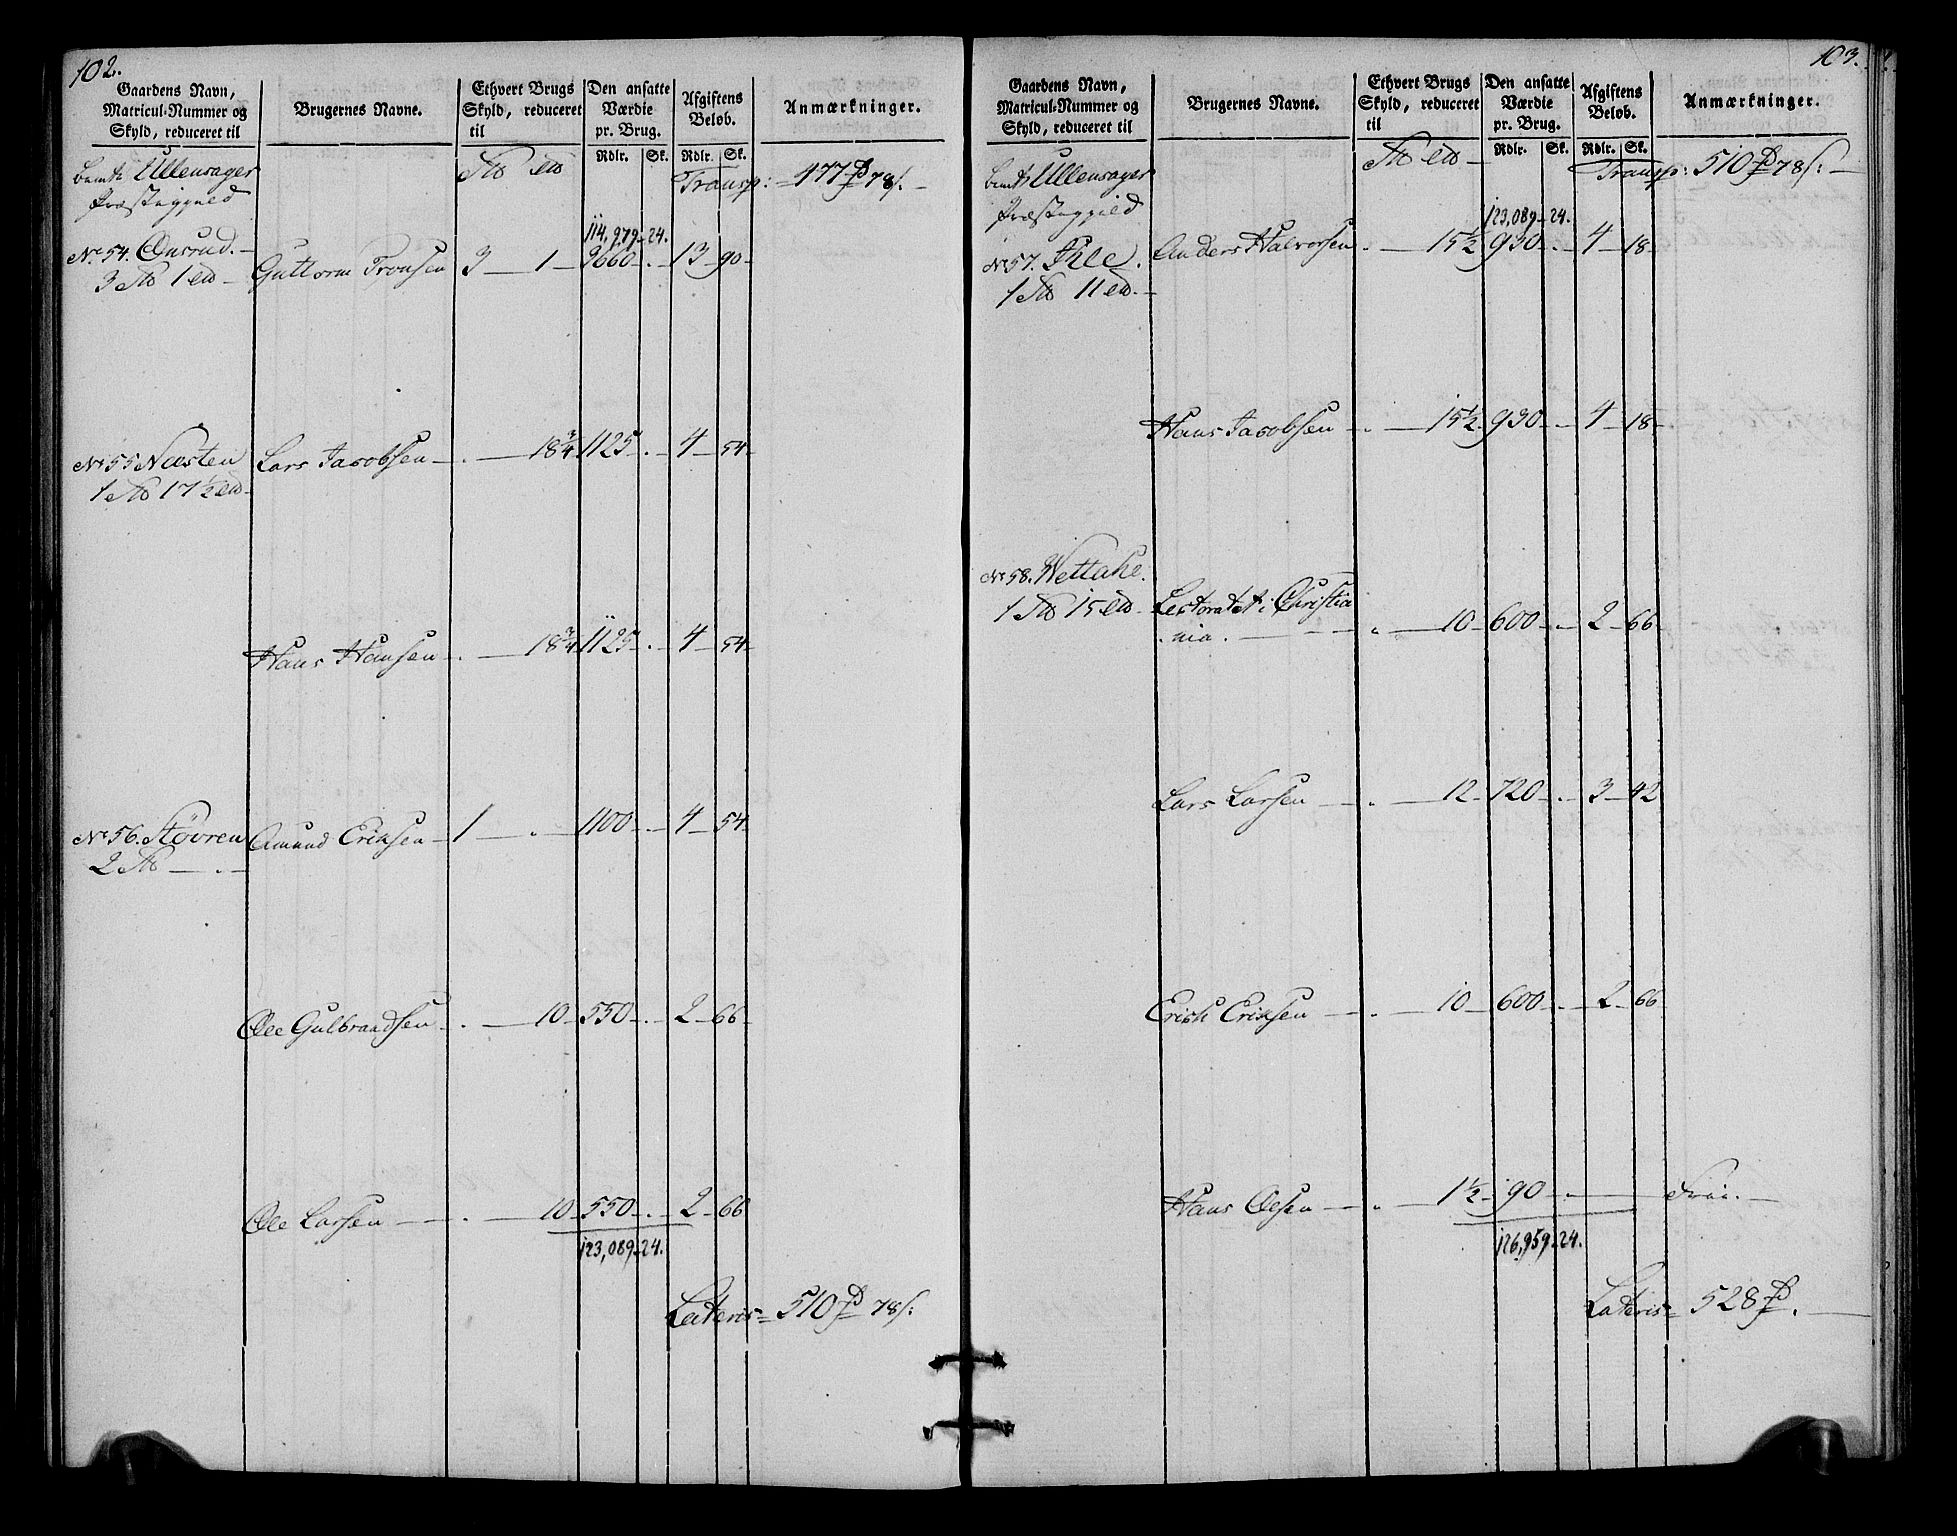 102.
Gaardens Navn, Matricul-Nummer og Skyld, reduceret til
Brugernes Navne.
Ethvert Brugs Skyld, reduceret til
Den ansatte Værdie pr. Brug.
Afgiftens Beløb.
Anmærkninger.
Rdlr. Sk. Rdlr. Sk.
Ullensager Transp: 477 78
Præstegield
114,979 - 24.
No 54. Onsrud. Guttorm Tronsen 3 1 3660 - 13 90
3 1
No 55 Næsten Lars Jacobsen 18 3/4 1125 - 4 54
1 17 1/2
Hans Hansen 18 3/4 1125 - 4 54
No 56. Støvren Amund Eriksen 1 1100 - 4 54
2
Ole Gulbrandsen 10 550 - 2 66
Ole Larsen 10 550 - 2 66
123,089 - 24.
Lateris 510 78
103.
Gaardens Navn, Matricul-Nummer og Skyld, reduceret til
Brugernes Navne.
Ethvert Brugs Skyld, reduceret til
Den ansatte Værdie pr. Brug.
Afgiftens Beløb.
Anmærkninger.
Rdlr. Sk. Rdlr. Sk.
Ullensager Transp: 510 78
Præstegield
123,089 - 24.
No 57. Ihle. Anders Halvorsen 15 1/2 930 - 4 18
1 11
Hans Jacobsen 15 1/2 930 - 4 18
No 58. Wettahe. Lectoratet i Christia
1 15
nia 10 600 - 2 66
Lars Larsen 12 720 - 3 42
Erich Eriksen 10 600 - 2 66
Hans Olsen 1 1/2 90 - Frie.
126,959 - 24.
Lateris 528